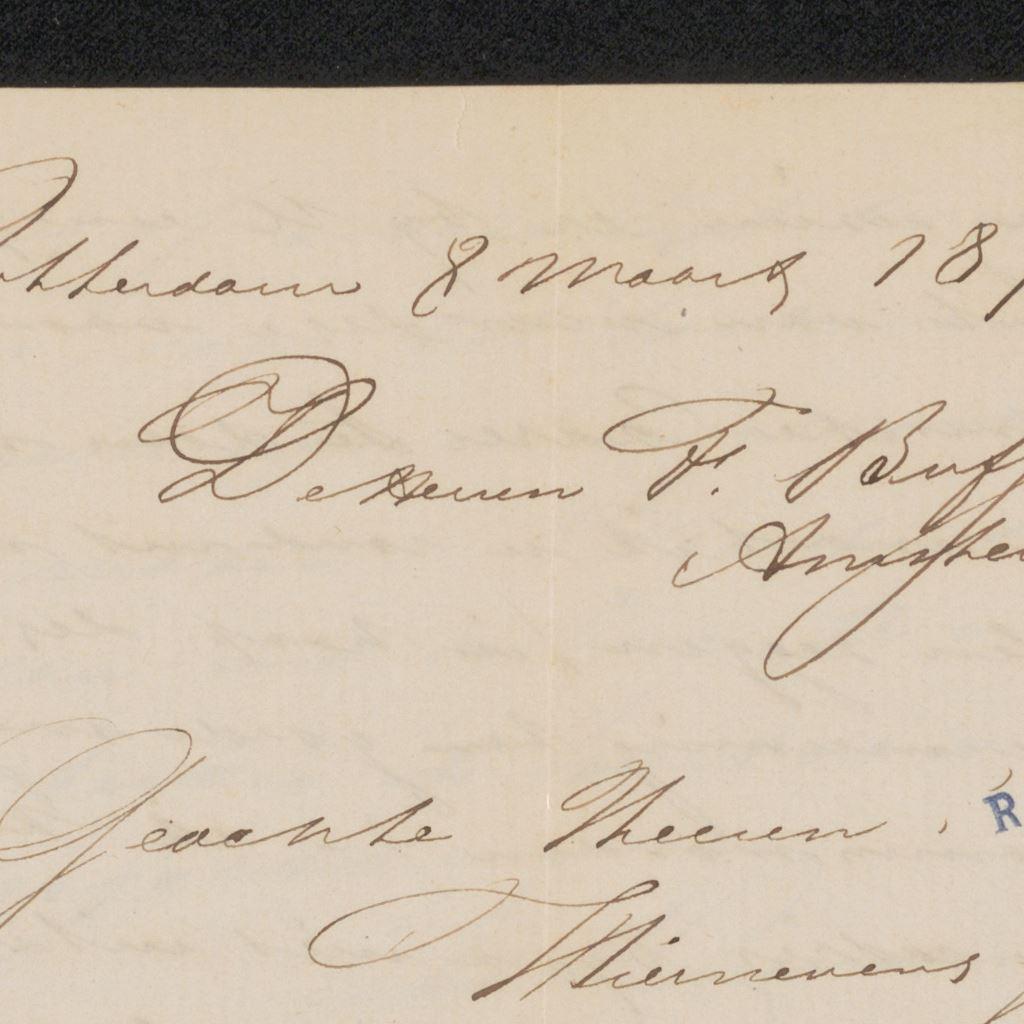 Rotterdam 8 Maart 18
De Heeren F. Buff
Amster
Geachte Heeren, R
Hiernevens